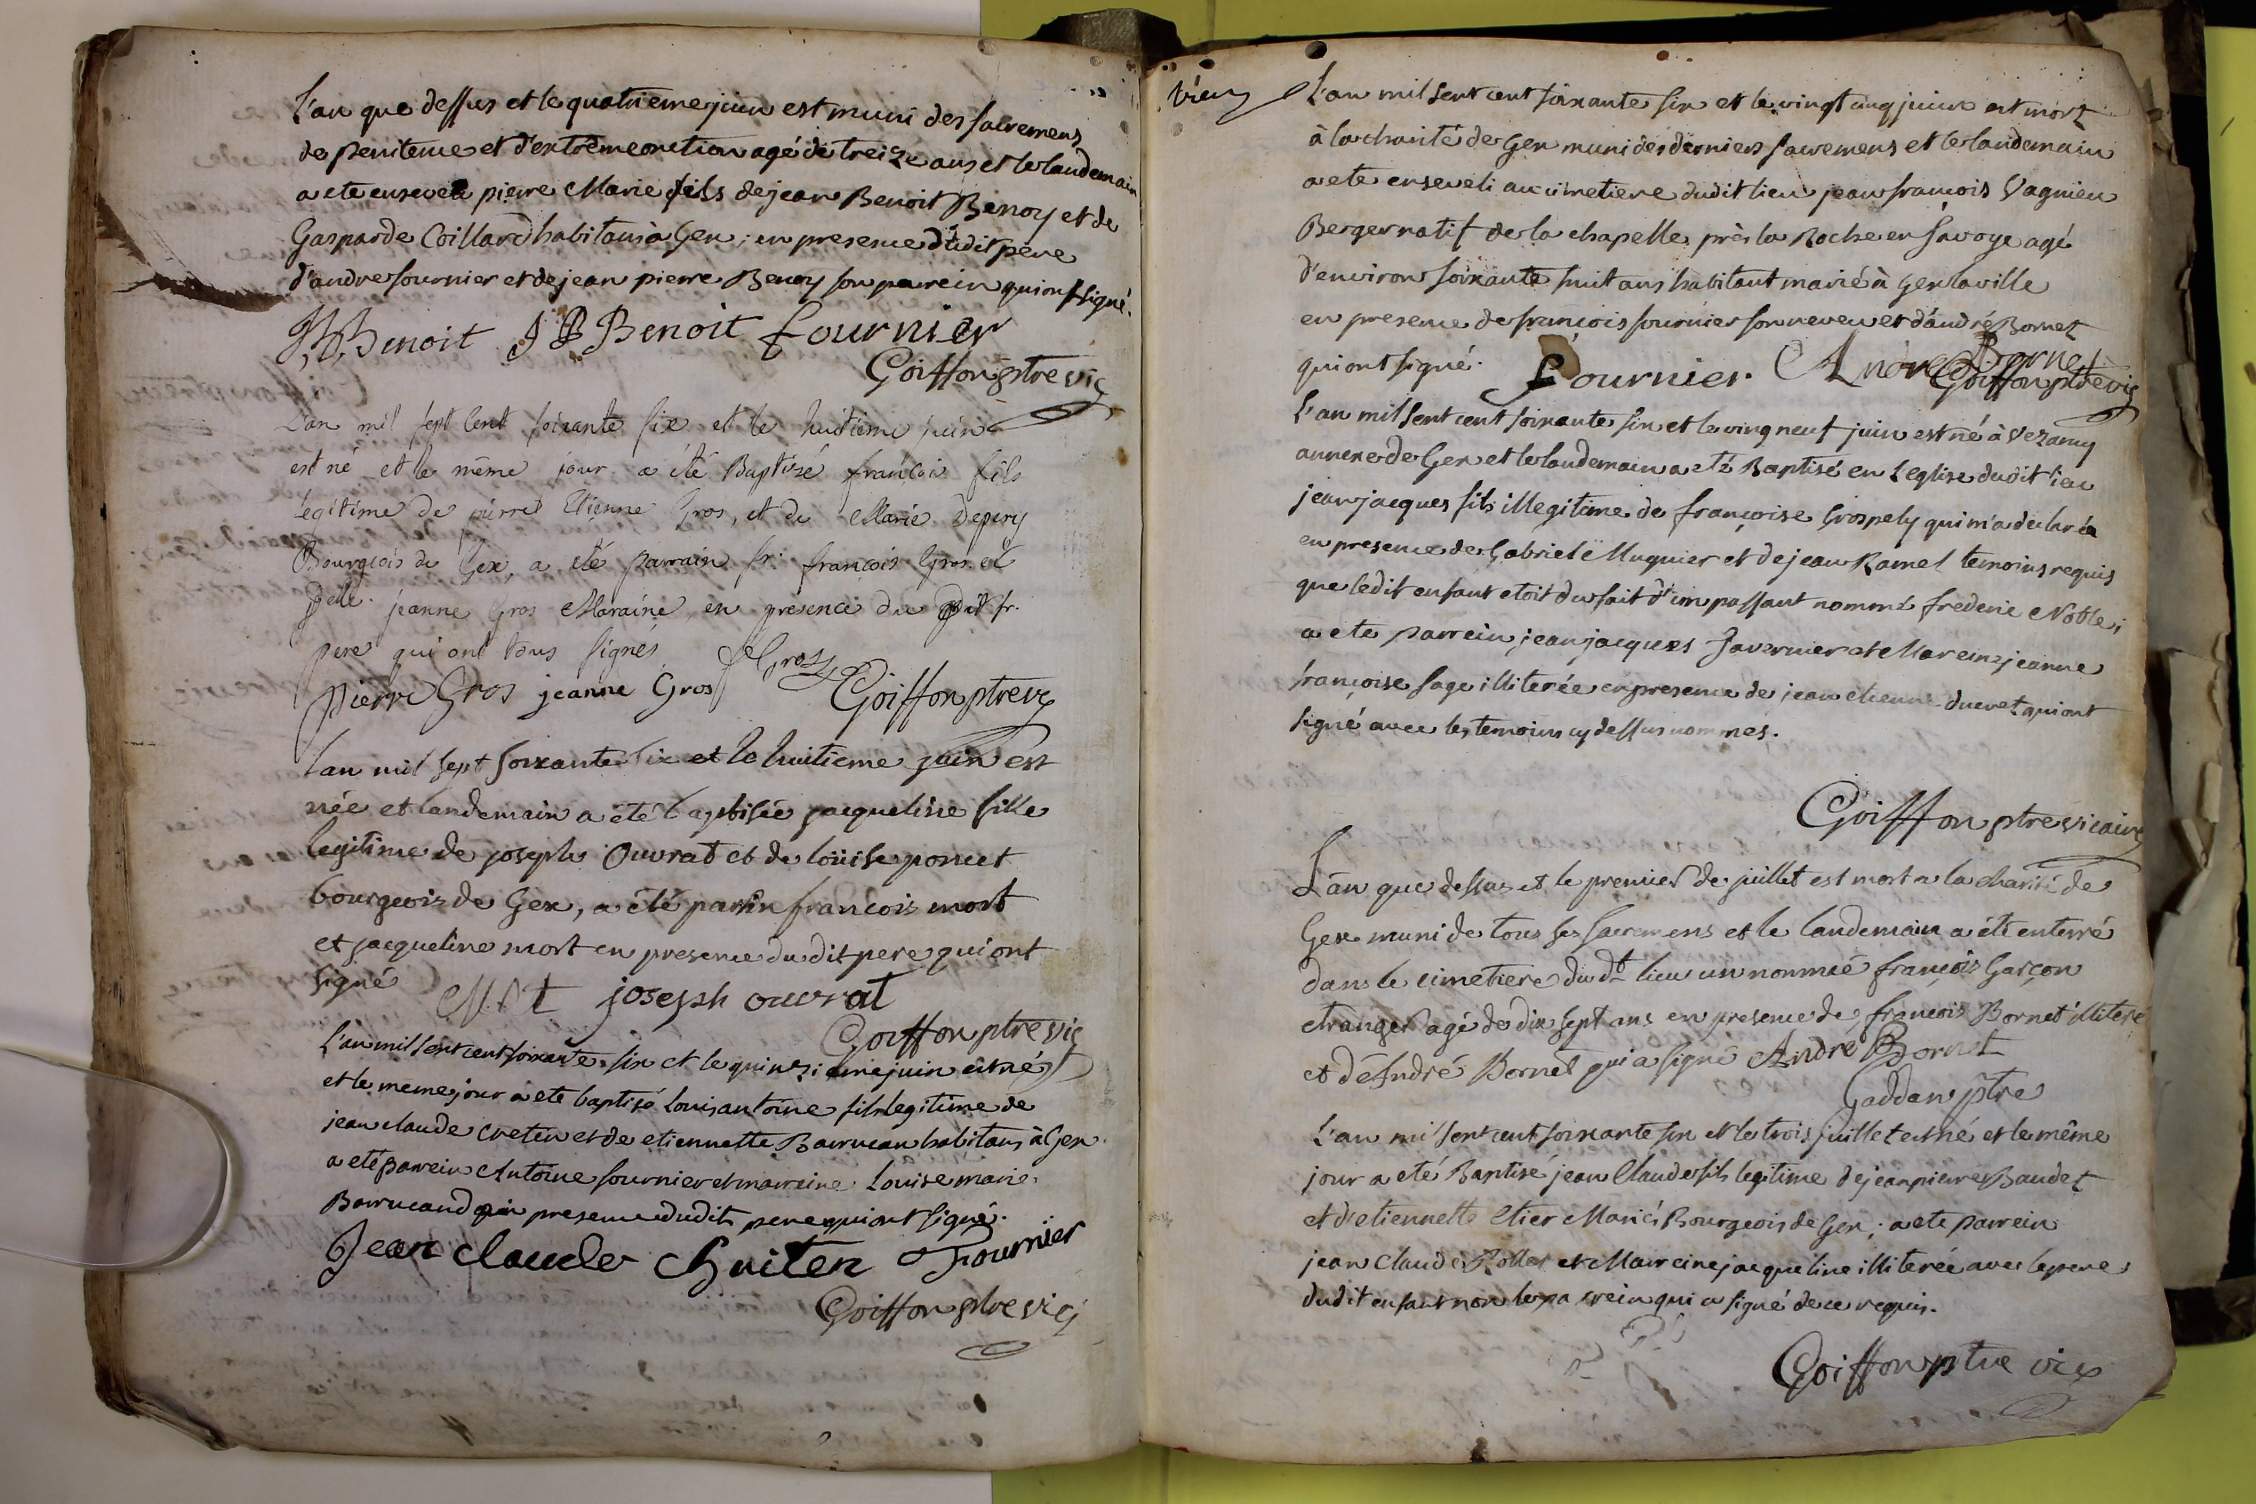 L'an que dessus et le quatrieme juin est muni des sacremens
de penitence et d'extrême onction agé de treize ans et le landemain
a ete enseveli pierre Marie fils de jean Benoit Benoy et de
Gasparde Coillard habitans à Gex; en presence dudit pere
d'andre fournier et de jean pierre Benoy son parein qui ont signé.
Benoit J B Benoit fournier
Goiffon ptre vic
L'an mil sept cent soixante six et le huitieme juin
est né et le même jour a été Baptisé françois fils
legitime de pierre Etienne Gros, et de Marie Depery
Bourgeois de Gex, a été parrain sr. françois Gros et
delle. jeanne Gros Maraine, en presence du dit sr.
pere qui ont tous signés
fGros
pierre Gros jeanne Gros Goiffon ptre v
Lan mil sept soixante six et le huitieme juin est
née et landemain a été baptisée jacqueline fille
legitime de joseph Ouvrat et de loüise poncet
bourgeois de Gex, a été parin francois mort
et jacqueline mort en presence du dit pere qui ont
signé
joseph ouvrat
Goiffon ptre vic
L'an mil sept cent soixante six et le quinzieme juin est né
et le meme jour a ete baptisé louis antoine fils legitime de
jean claude creten et de etiennette Barrucan habitans à Gex.
a eté parrein Antoine fournier et marreine Louise marie
Barrucand en presence dudit pere qui ont signé.
Jean claude Chuiten Fournier
Goiffon ptre vic
vieu
L'an mil sept cent soixante six et le vingt cinq juin est mort
à la charité de Gex muni des derniers sacremens et le landemain
a ete enseveli au cimetiere dudit lieu jean françois Vagnieu
Berger natif de la chapelle près la Roche en savoye agé
d'environ soixante huit ans habitant marié à Gex la ville
en presence de francois fournier son neveu et d'andré Bornet
qui ont signé.
fournier. André Bornet
Goiffon ptre vic
L'an mil sept cent soixante six et le vingt neuf juin est né à Vezancy
annexe de Gex et le landemain a eté Baptisé en l'eglise dudit lieu
jean jacques fils illegitime de françoise Grospely qui m'a declaré
en presence de Gabriel Muquier et de jean Ramel temoins requis
que ledit enfant etoit du fait d'un passant nommé frederic Noble;
a ete parrein jean jacques Tavernier et Mareine jeanne
françoise sage illiterée en presence de jean etienne ducret qui ont
signé avec les temoins cy dessus nommes.
Goiffon ptre vicaire
L'an que dessus et le premier de juillet est mort a la charité de
Gex muni de tous ses sacremens et le landemain a été enterré
dans le cimetiere du dt. lieu un nommé françois Garçon
etranger agé de dix sept ans en presence de françois Bornet illiteré
et d'André Bornet qui a signé André Bornet
Gaddan ptre
L'an mil sept cent soixante six et le trois juillet est né et le même
jour a eté Baptisé jean Claude fils legitime de jean pierre Baudet
et d'etiennette etier Mariés Bourgeois de Gex; a ete parrein
jean Claude Rollet et Marreine jacqueline illiterée avec le pere
dudit enfant non le parrein qui a signé de ce requis.
Goiffon ptre vic